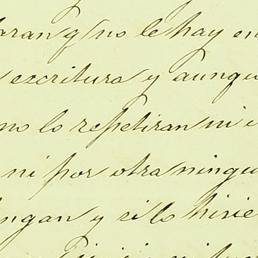 aran q no le hay en
escritura y aunqu
no lo repetiran ni
ni por otra ningu
ngan y si lo hicie